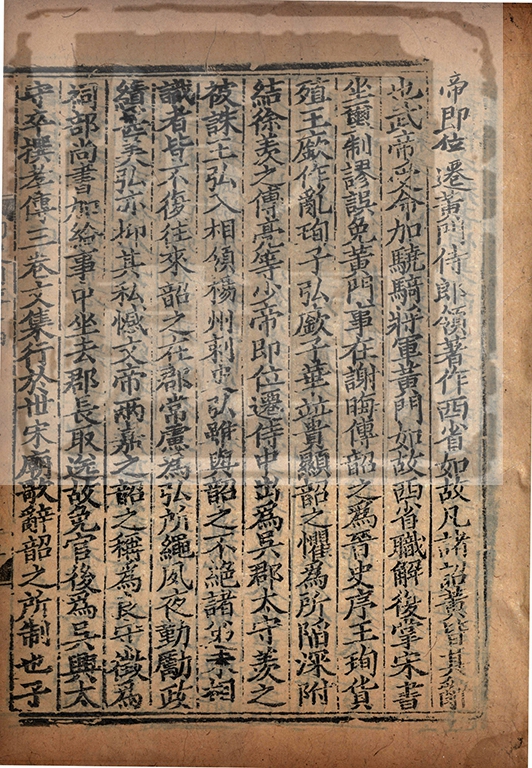 帝即位遷黃門侍郎領著作西省如故凡諸詔黃皆其辭
也武帝受命加驍騎將軍黃門如故西省職解復掌宋書
坐璽制謬誤免黃門事在謝晦傳韶之為晉史序王珣貨
殖王廞作亂珣子弘廞子華並貴顯韶之懼為所陷深附
結徐羨之傅亮等少帝即位遷侍中出為吳郡太守羨之
被誅王弘入相領楊州刺史弘雖與韶之不絶諸弟未相
識者皆不復往來韶之在郡常慮為弘所繩夙夜勤勵政
績甚美弘亦抑其私憾文帝兩嘉之韶之稱為良守徵為
祠部尚書加給事中坐去郡長取送故免官後為吳興太
守卒撰孝傳三卷文集行於世宋廟歌辭韶之所制也子